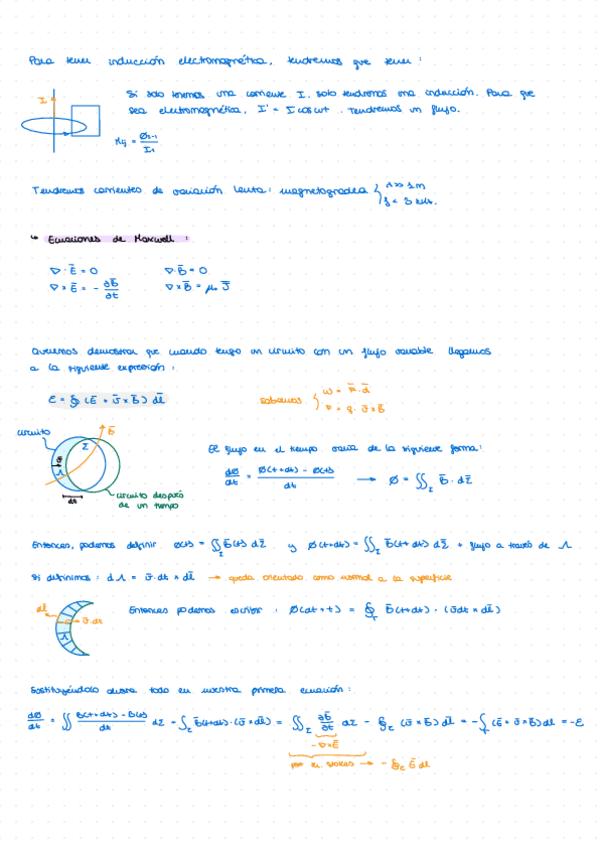 Para tener inducción electromagnética, tendremos que tener :
Si solo tenemos una corriente I, solo tendremos una inducción. Para que
sea electromagnética, I' = I cos ωt . Tendremos un flujo.
I
Mij = Ø2-1 / I1
Tendremos corrientes de variación lenta: magnetogradea { λ >> 1 m
↳ Ecuaciones de Maxwell :
∇ · Ē = 0    ∇ · B̄ = 0
∇ × Ē = - ∂B̄/∂t    ∇ × B̄ = μ₀ J̄
Queremos demostrar que cuando tengo un circuito con un flujo variable llegamos
a la siguiente expresión :
ε = ∮ (Ē + v̄ × B̄) dl̄    sabemos { ω = F̄ · d̄
F̄ = q · v̄ × B̄
circuito
B̄
Σ
Λ
dl
El flujo en el tiempo varia de la siguiente forma:
dØ/dt = Ø(t+dt) - Ø(t) / dt → Ø = ∬Σ B̄ · dΣ̄
circuito después
de un tiempo
Entonces, podemos definir Ø(t) = ∬Σ B̄(t) dΣ̄ y Ø(t+dt) = ∬Σ B̄(t+dt) dΣ̄ + flujo a través de Λ
Si definimos : dΛ = v̄ · dt × dl̄ → queda orientado como normal a la superficie
dl̄
v̄ · dt
Λ
Entonces podemos escribir : Ø(dt+t) = ∮Γ B̄(t+dt) · (v̄dt × dl̄)
Sustituyéndolo ahora todo en nuestra primera ecuación :
dØ/dt = ∬ B(t+dt) - B(t) / dt dΣ - ∫Σ B̄(t+dt) · (v̄ × dl̄) = ∬Σ ∂B̄/∂t dΣ - ∮Σ (v̄ × B̄) dl̄ = -∫Γ (Ē + v̄ × B̄) dl = -ε
-∇×Ē
por th. Stokes → - ∮Σ Ē dl